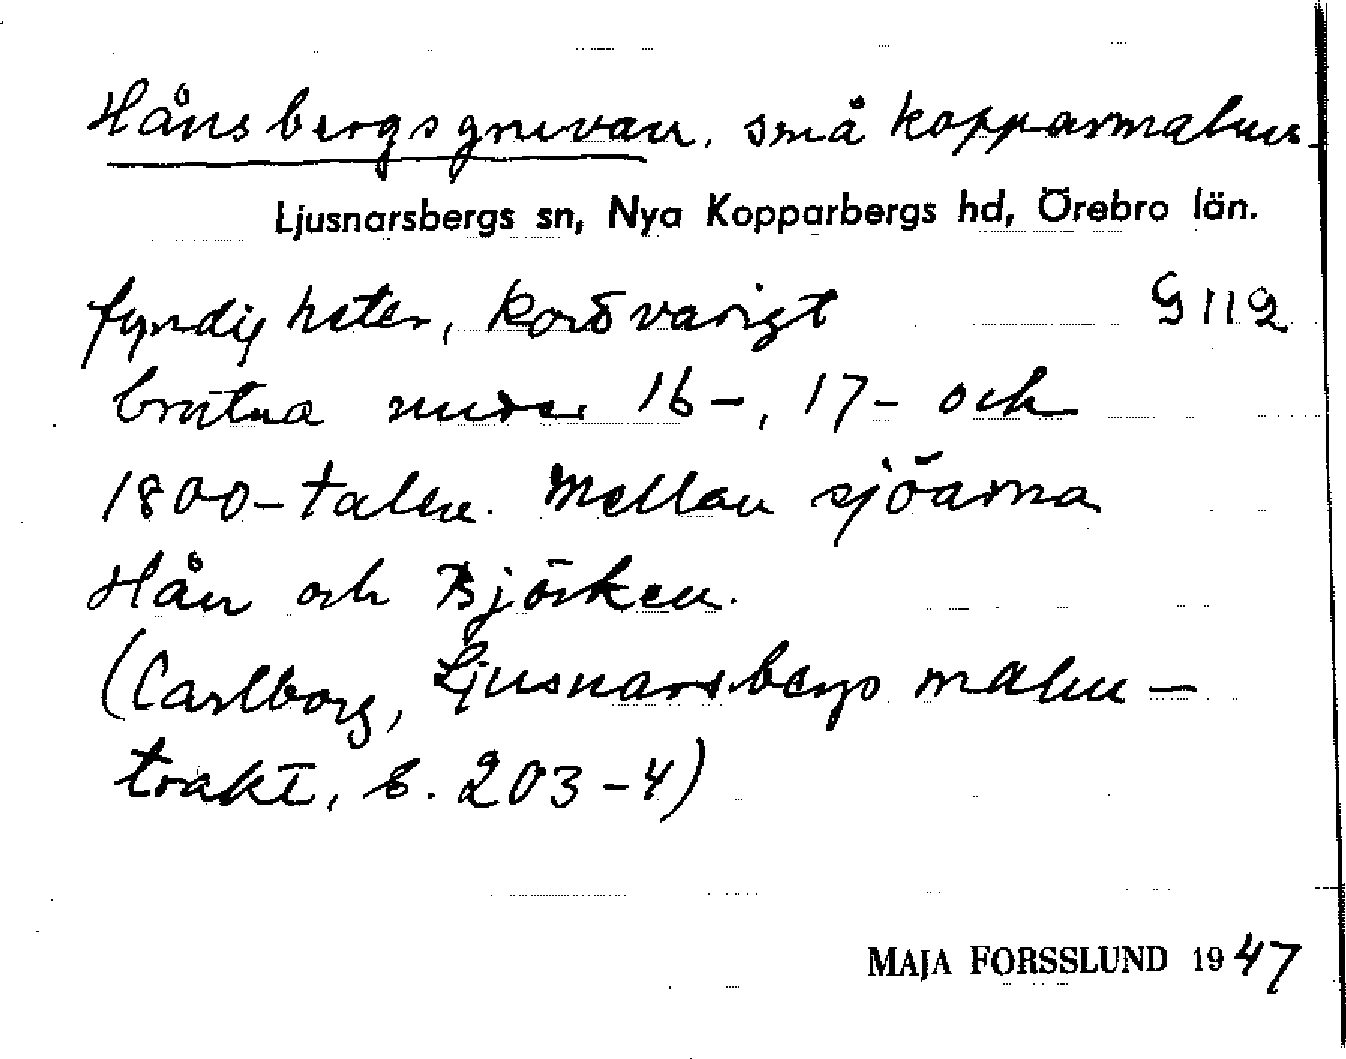 Hånsbergsgruvan, små kopparmalms-
Ljusnarsbergs sn, Nya Kopparbergs hd, Örebro län.
fyndigheter, kortvarigt G 112
brutna under 16-, 17- och
1800-talen. Mellan sjöarna
Hån och Björken.
(Carlborg, Ljusnarsbergs malm-
trakt, s. 203-4)
MAJA FORSSLUND 1947